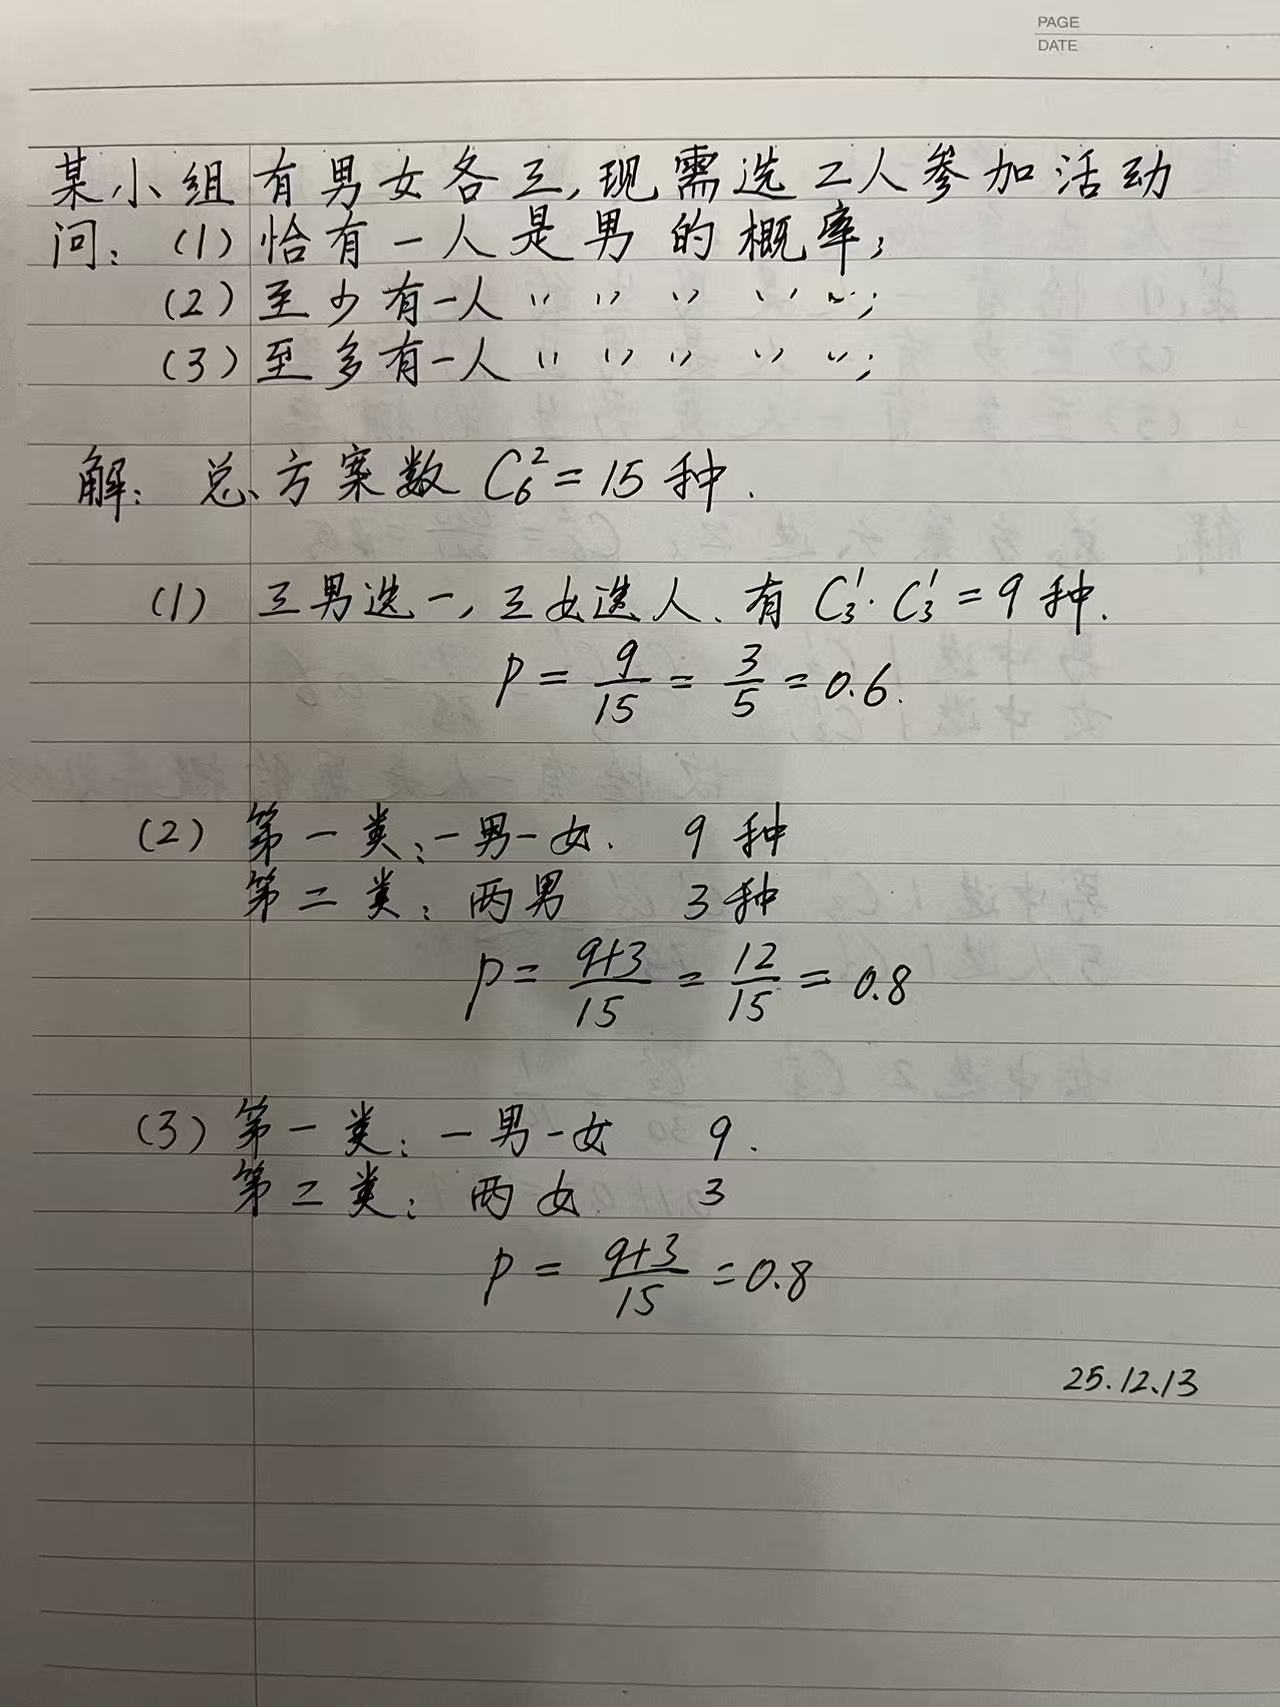 PAGE
DATE
某小组有男女各三,现需选二人参加活动
问:(1)恰有一人是男的概率;
(2)至少有一人 〃 〃 〃 〃 〃;
(3)至多有一人 〃 〃 〃 〃 〃;
解: 总方案数 C₆² = 15 种.
(1) 三男选一,三女选人、有 C₃¹·C₃¹ = 9 种.
P = 9/15 = 3/5 = 0.6.
(2) 第一类:一男一女. 9 种
第二类:两男 3 种
P = 9+3/15 = 12/15 = 0.8
(3) 第一类:一男一女 9.
第二类:两女 3
P = 9+3/15 = 0.8
25.12.13